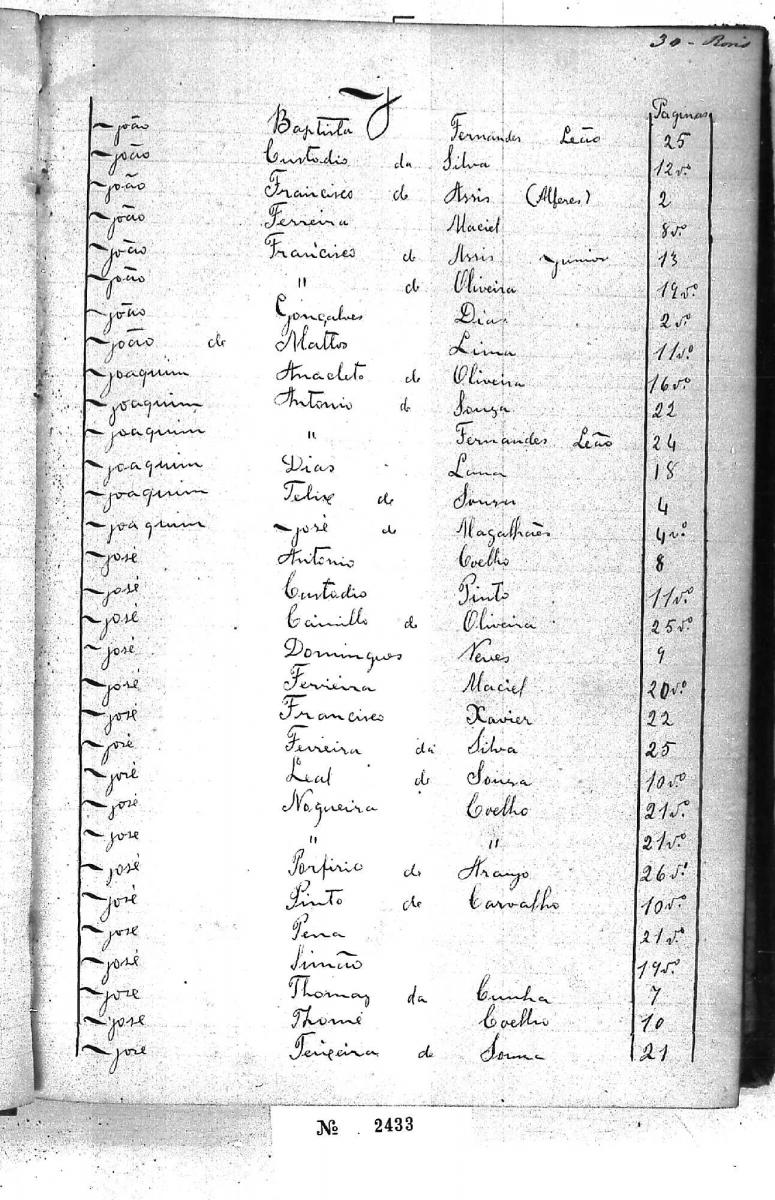 30 -
J
Paginas
João Baptista Fernandes Leão 25
João Custodio da Silva 12vº
João Francisco de Assis (Alferes) 2
João Ferreira Maciel 8vº
João Francisco de Assis Junior 13
João " de Oliveira 19vº
João Gonçalves Dias 2vº
João de Mattos Lima 11vº
Joaquim Anacleto de Oliveira 16vº
Joaquim Antonio de Souza 22
Joaquim " Fernandes Leão 24
Joaquim Dias Lana 18
Joaquim Felix de Souza 4
Joaquim José de Magalhães 4vº
José Antonio Coelho 8
José Custodio Pinto 11vº
José Camillo de Oliveira 25vº
José Domingues Neves 9
José Ferreira Maciel 20vº
José Francisco Xavier 22
José Ferreira da Silva 25
José Leal de Souza 10vº
José Nogueira Coelho 21vº
José " " 21vº
José Porfirio de Araujo 26vº
José Pinto de Carvalho 10vº
José Pena 21vº
José Simão 19vº
José Thomaz da Cunha 7
José Thomé Coelho 10
José Teixeira de Souza 21
Nº 2433